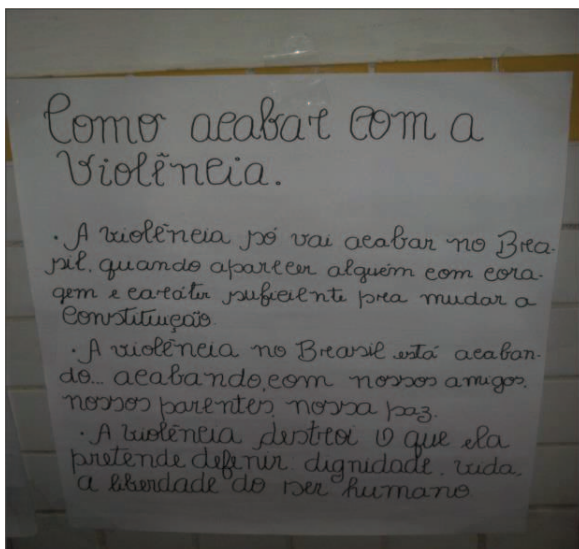 Como acabar com a
Violência.
. A violência só vai acabar no Brea-
sil, quando aparecer alguém com cora-
gem e caráter suficiente pra mudar a
Constituição.
. A violência no Breasil está acaban-
do... acabando com nossos amigos,
nossos parentes, nossa paz.
. A violência destroi o que ela
pretende defenir dignidade. vida.
a liberdade do ser humano